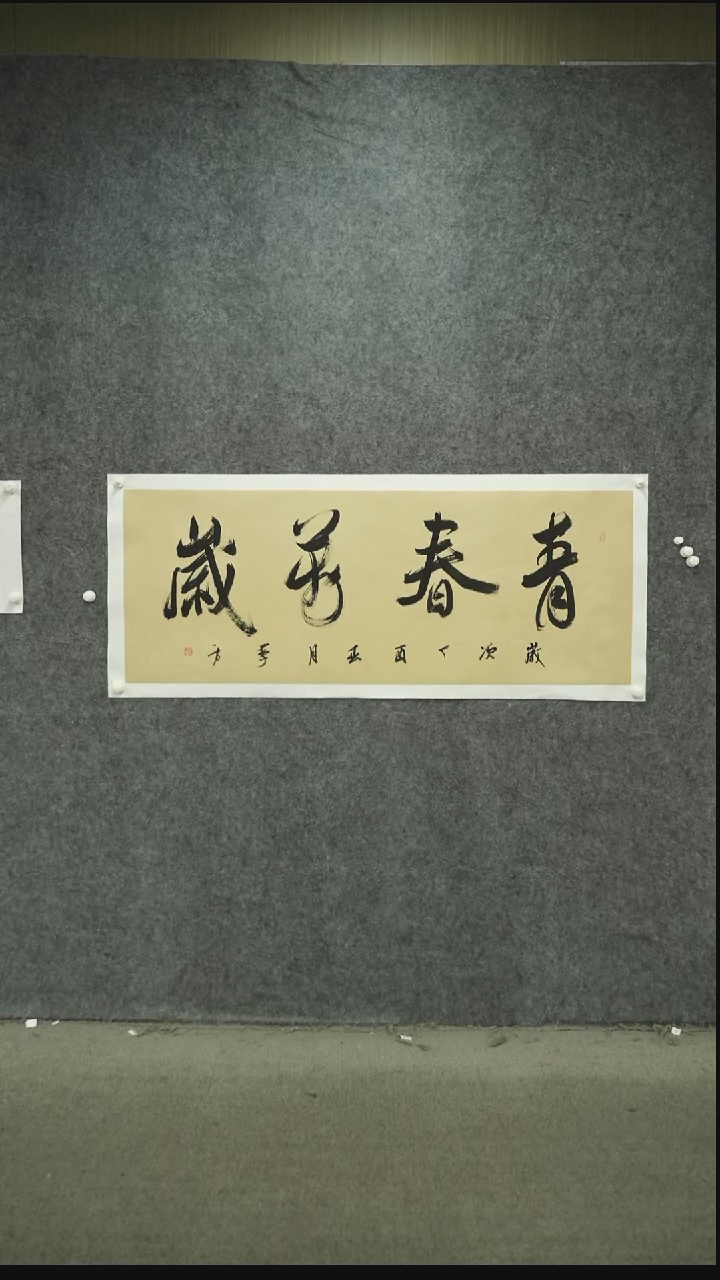 青春萬歲
歲次丁酉五月季方